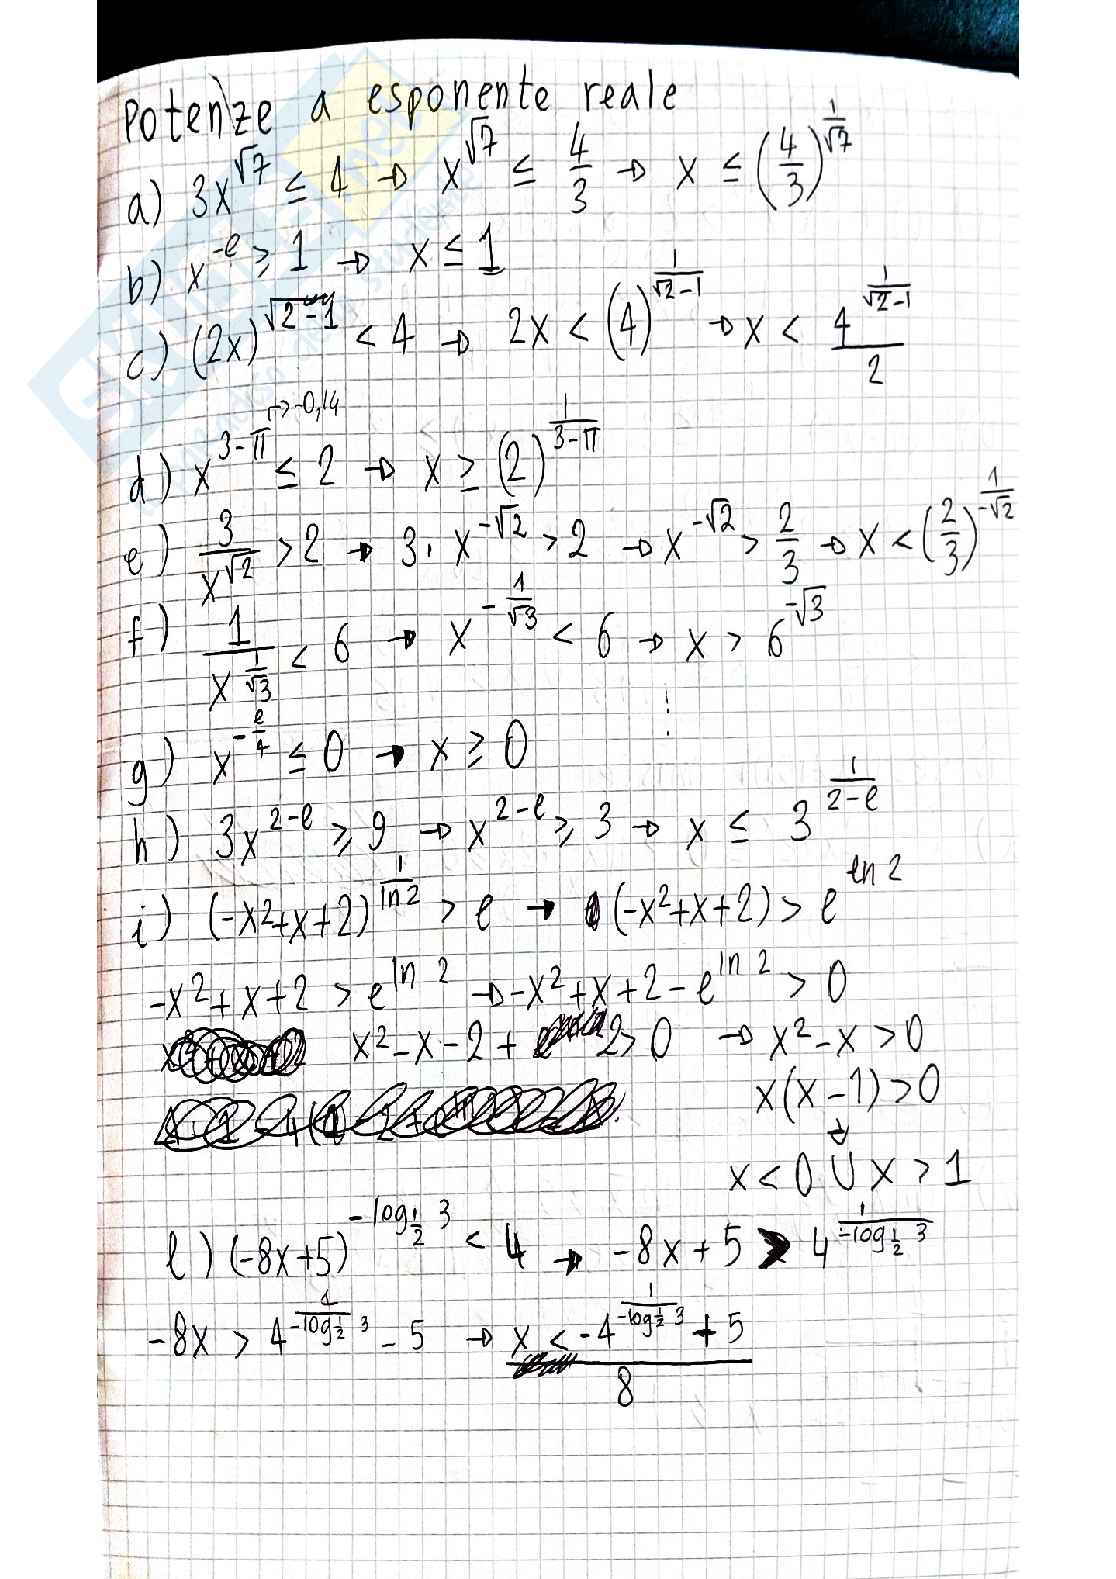 Potenze a esponente reale
a) 3x^√7 ≤ 4 → x^√7 ≤ 4/3 → x ≤ (4/3)^(1/√7)
b) x^-e ≥ 1 → x ≤ 1
c) (2x)^(√2-1) < 4 → 2x < (4)^(1/(√2-1)) → x < 4^(1/(√2-1))/2
→ -0,14
d) x^(3-π) ≤ 2 → x ≥ (2)^(1/(3-π))
e) 3/x^√2 > 2 → 3 · x^-√2 > 2 → x^-√2 > 2/3 → x < (2/3)^(1/-√2)
f) 1/x^(1/√3) < 6 → x^(-1/√3) < 6 → x > 6^-√3
g) x^(-e/4) ≤ 0 → x ≥ 0
h) 3x^(2-e) ≥ 9 → x^(2-e) ≥ 3 → x ≤ 3^(1/(2-e))
i) (-x²+x+2)^(1/ln2) > e → (-x²+x+2) > e^ln2
-x²+x+2 > e^ln 2 → -x²+x+2-e^ln 2 > 0
x²-x-2+ 2 > 0 → x²-x > 0
x(x-1) > 0
↓
x < 0 ∪ x > 1
l) (-8x+5)^(-log_1/2 3) < 4 → -8x+5 > 4^(1/(-log_1/2 3))
-8x > 4^(1/(-log_1/2 3)) - 5 → x < (-4^(1/(-log_1/2 3)) + 5)/8